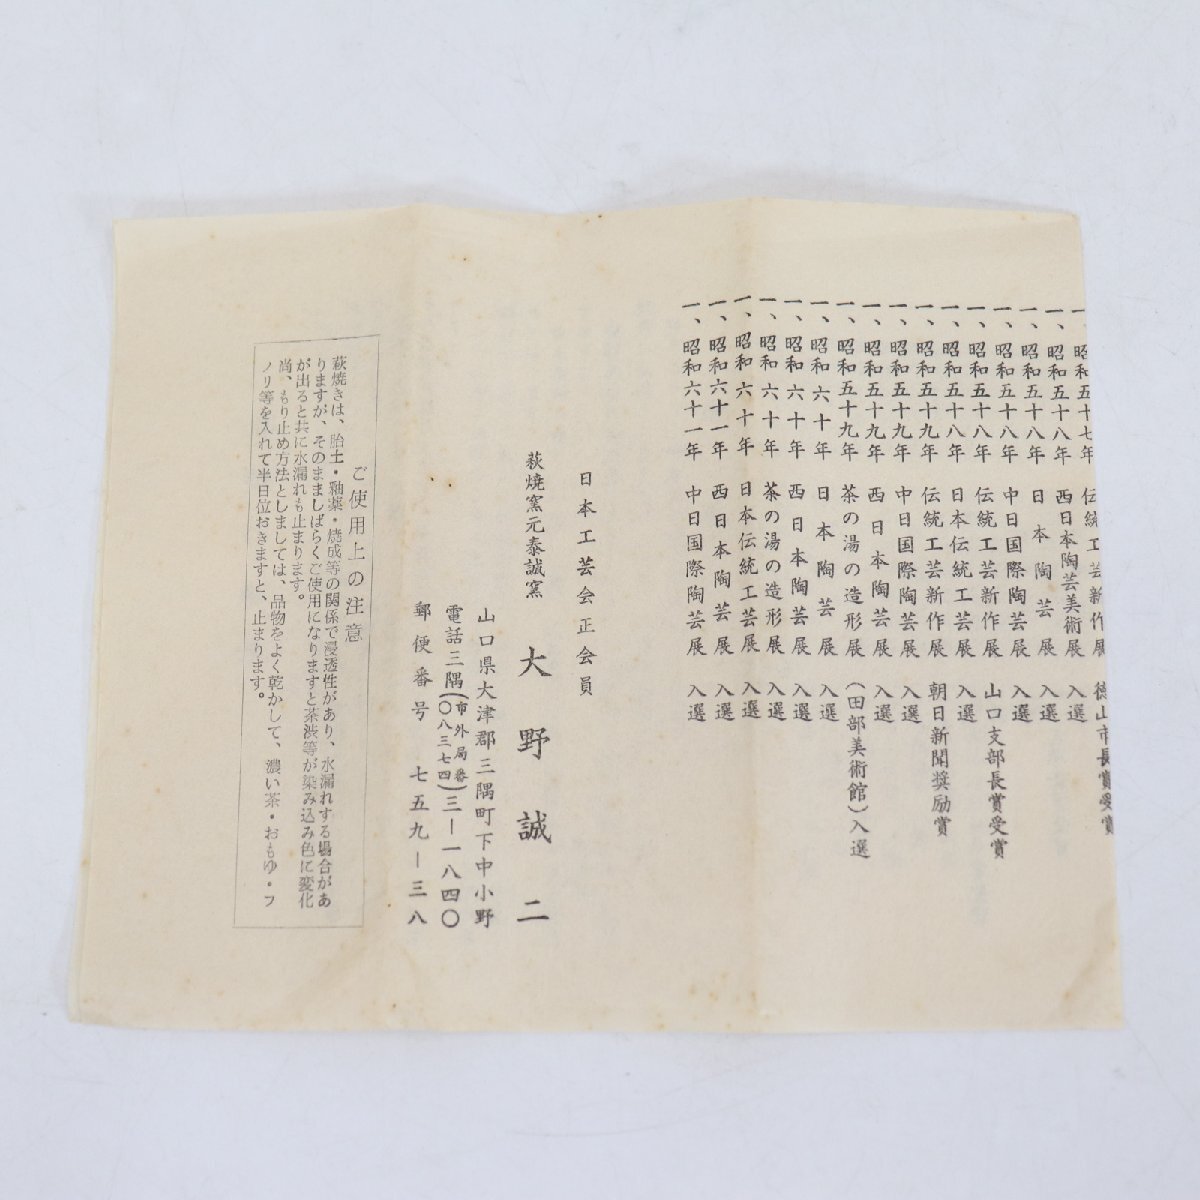 一、昭和五十七年 伝統工芸新作展 徳山市長賞受賞
一、昭和五十八年 西日本陶芸美術展 入選
一、昭和五十八年 日本陶芸展 入選
一、昭和五十八年 中日国際陶芸展 入選
一、昭和五十八年 伝統工芸新作展 山口支部長賞受賞
一、昭和五十八年 日本伝統工芸展 入選
一、昭和五十九年 伝統工芸新作展 朝日新聞奨励賞
一、昭和五十九年 中日国際陶芸展 入選
一、昭和五十九年 西日本陶芸展 入選
一、昭和五十九年 茶の湯の造形展 (田部美術館)入選
一、昭和六十年 日本陶芸展 入選
一、昭和六十年 西日本陶芸展 入選
一、昭和六十年 茶の湯の造形展 入選
一、昭和六十年 日本伝統工芸展 入選
一、昭和六十一年 西日本陶芸展 入選
一、昭和六十一年 中日国際陶芸展 入選
日本工芸会正会員
萩焼窯元泰誠窯 大野誠二
山口県大津郡三隅町下中小野
電話三隅(市外局番〇八三七四)三ー一八四〇
郵便番号 七五九ー三八
ご使用上の注意
萩焼きは、胎土・釉薬・焼成等の関係で浸透性があり、水漏れする場合があ
りますが、そのまましばらくご使用になりますと茶渋等が染み込み色に変化
が出ると共に水漏れも止まります。
尚、もり止め方法としましては、品物をよく乾かして、濃い茶・おもゆ・フ
ノリ等を入れて半日位おきますと、止まります。